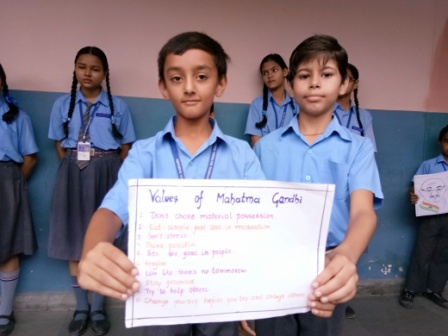 Values of Mahatma Gandhi
1. Don't chase material possession
2. Eat simple food and in moderation
3. Don't stress
4. Think positive
5. See the good in people
6. Forgive
7. Live like there's no tomorrow
8. Stay grounded
9. Try to help others
10. Change yourself before you try and change others